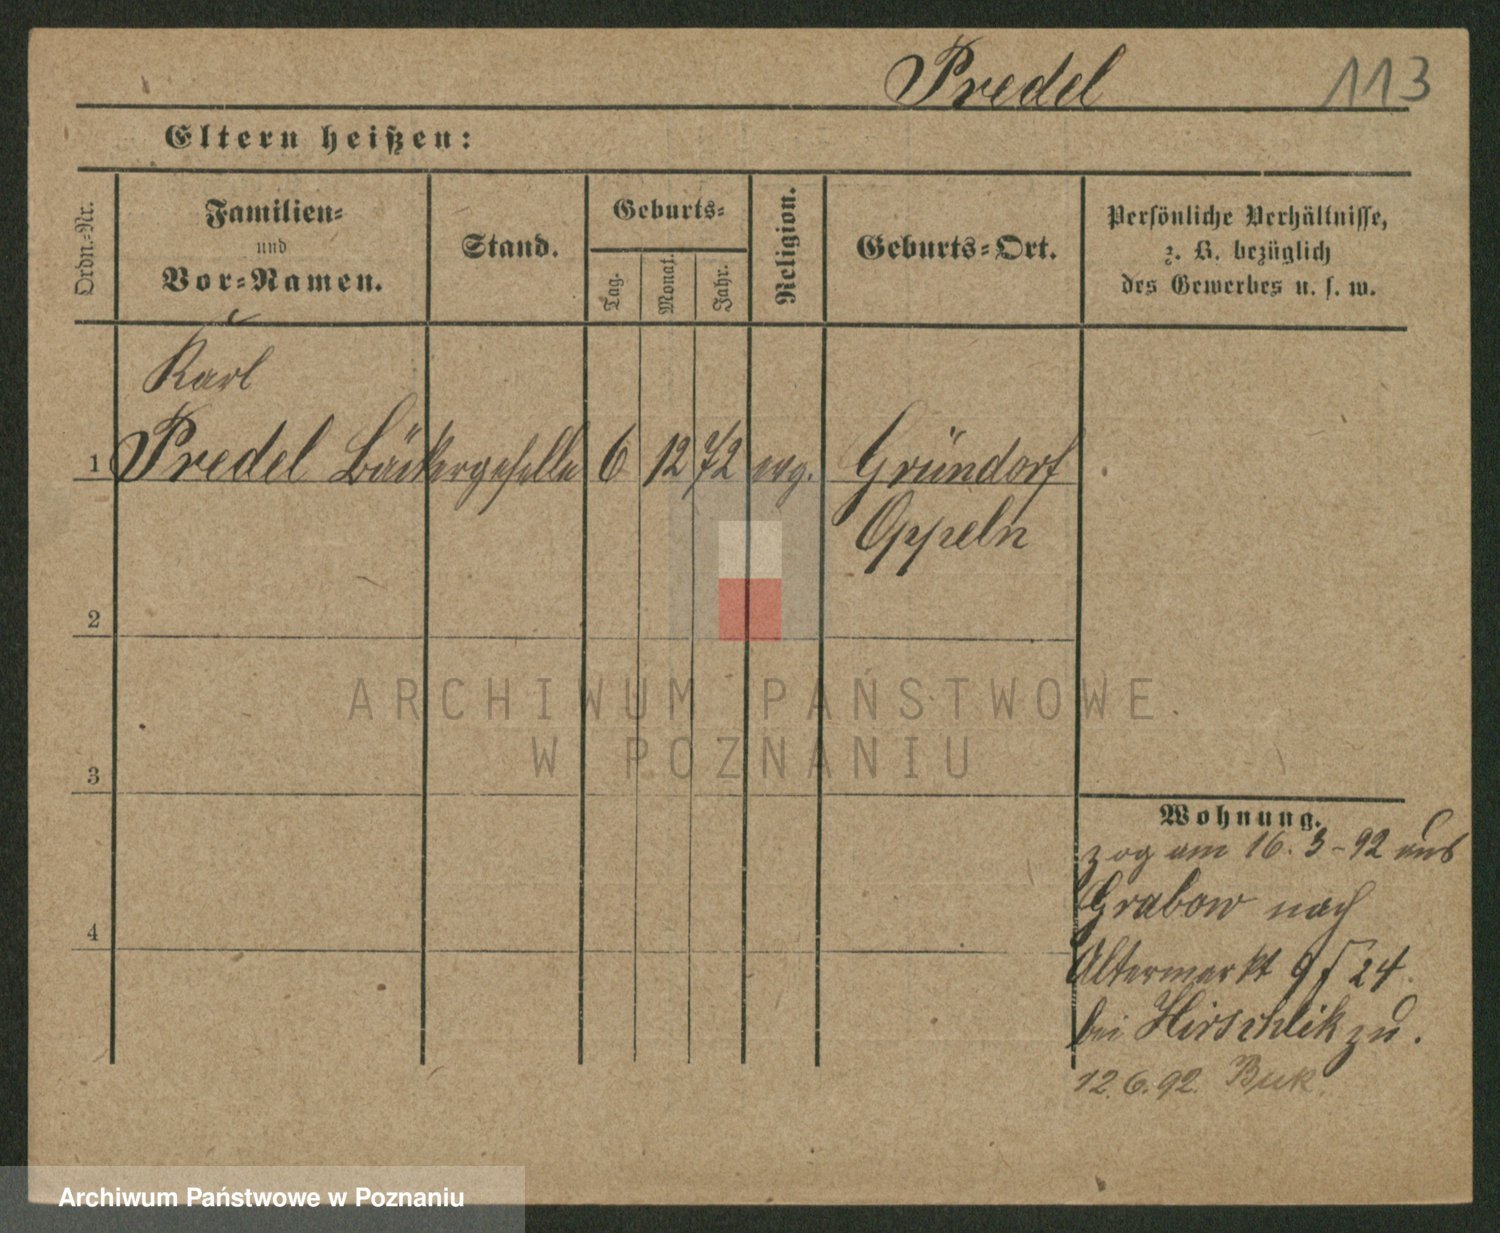 Predel 113
Eltern heißen:
Ordn.-Nr.
Familien-
und
Vor-Namen.
Stand.
Geburts-
Tag.
Monat.
Jahr.
Religion.
Geburts-Ort.
Persönliche Verhältnisse,
z. B. bezüglich
des Gewerbes u. s. w.
Karl
1 Predel Bäckergeselle 6 12 72 evg. Gründorf
Oppeln
2
3
4
Wohnung.
zog am 16. 3-92 aus
Grabow nach
Altermarkt 24
bei Hirschlik zu.
12.6.92. Buk.
ARCHIWUM PAŃSTWOWE
W POZNANIU
Archiwum Państwowe w Poznaniu